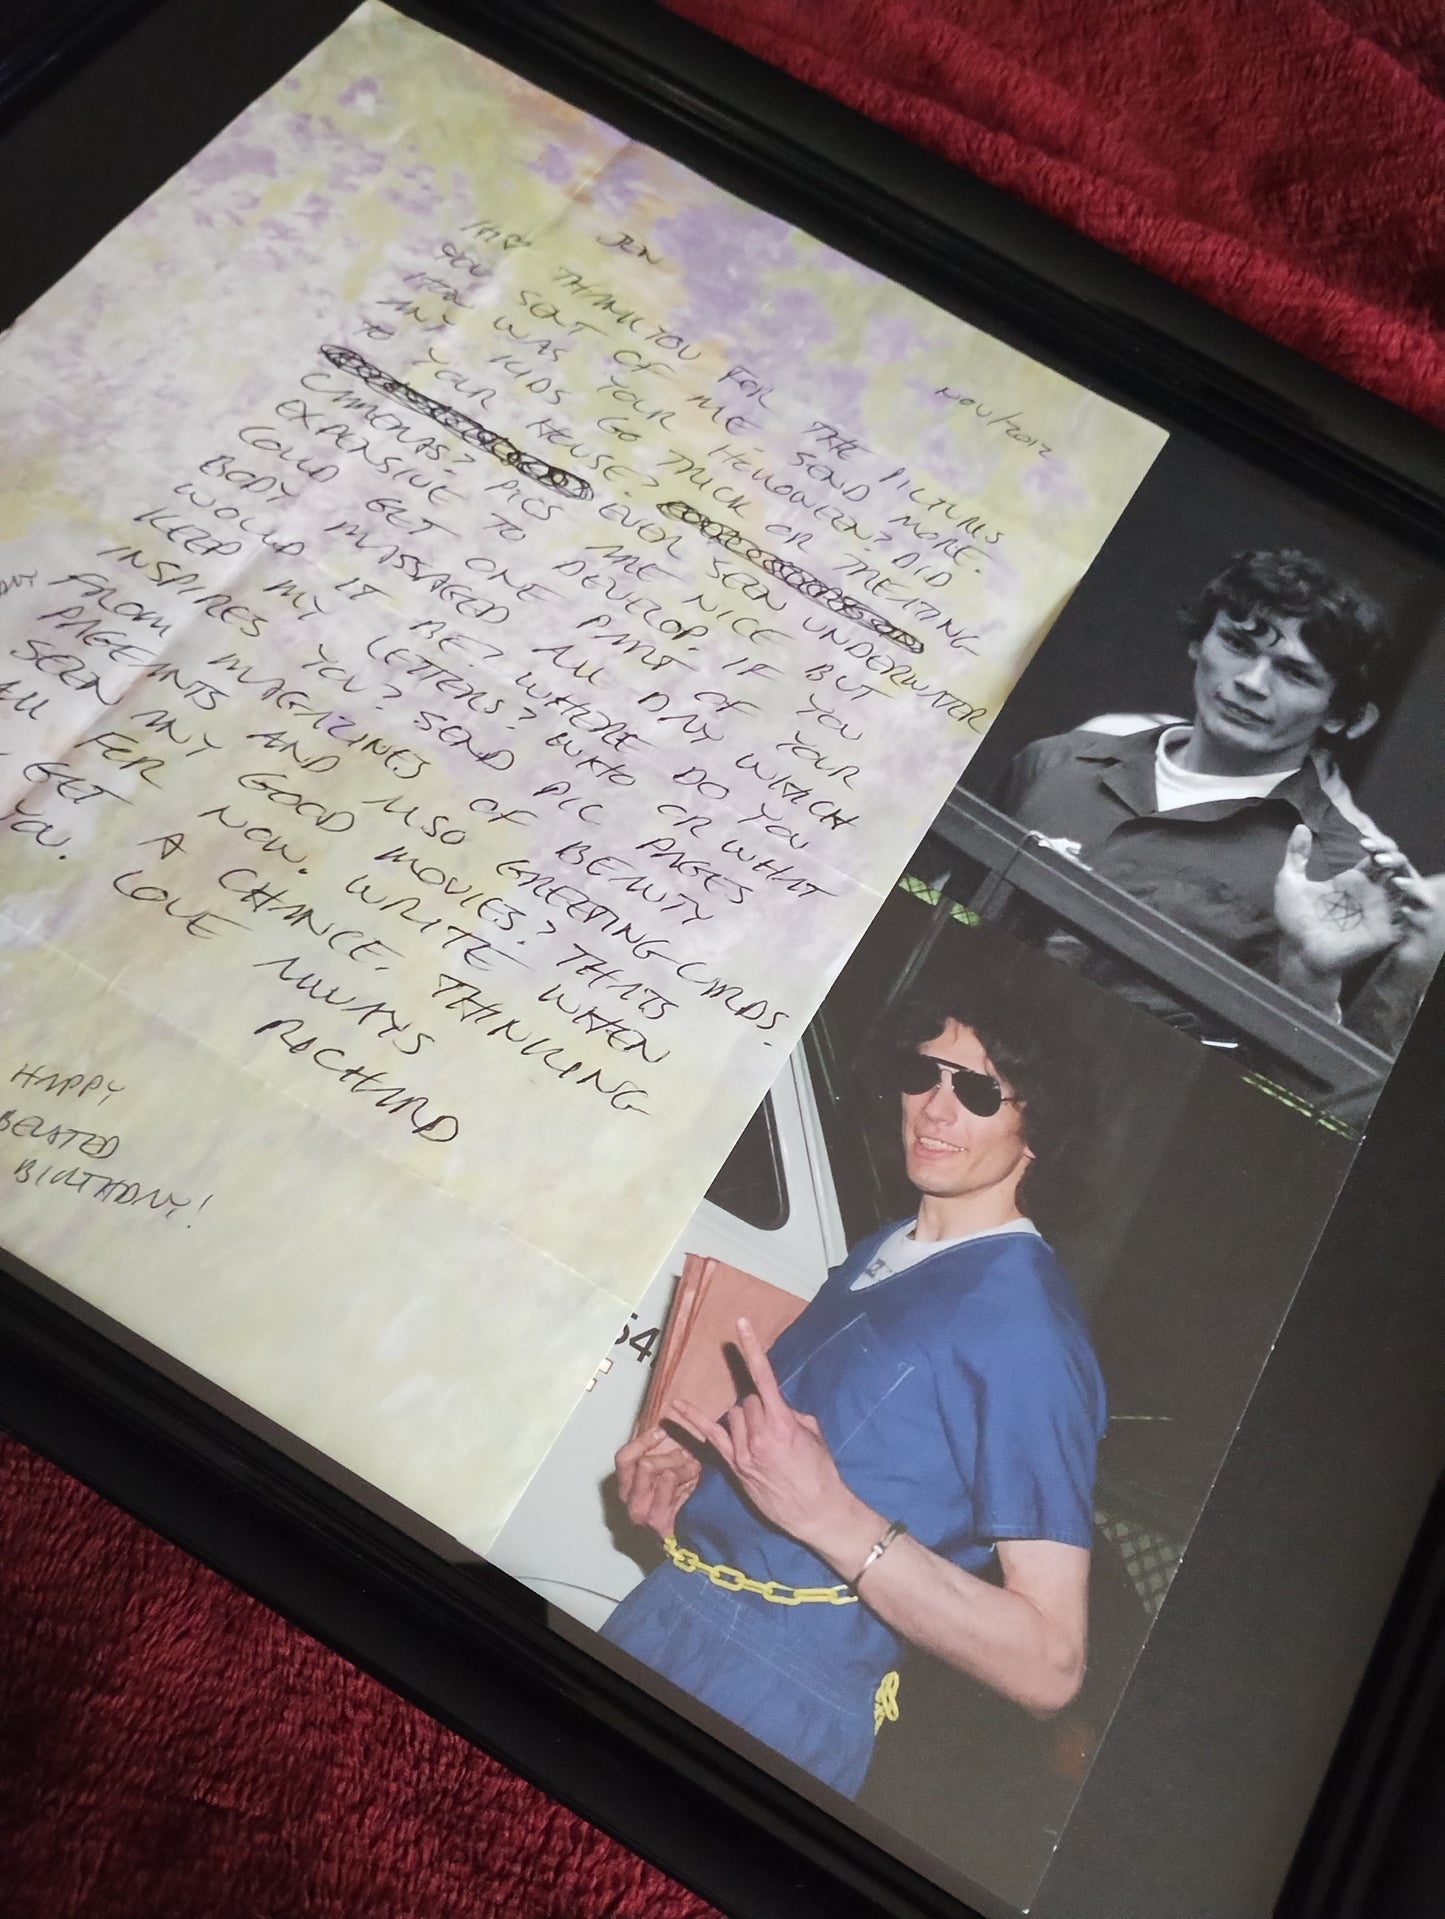 NOV/2012
JEN
HI ♡ THANK YOU FOR THE PICTURES
YOU SENT OF ME. SEND MORE.
HOW WAS YOUR HELLOWEEN? DID
ANY KIDS GO TRICK OR TREATING
TO YOUR HOUSE?
EVER SEEN UNDERWATER
CAMERAS? PICS ARE NICE BUT
EXPENSIVE TO DEVELOP. IF YOU
COULD GET ONE PART OF YOUR
BODY MASSAGED ALL DAY WHICH
WOULD IT BE? WHERE DO YOU
KEEP MY LETTERS? WHO OR WHAT
INSPIRES YOU? SEND PIC PAGES
FROM MAGAZINES OF BEAUTY
PAGEANTS AND ALSO GREETING CARDS.
SEEN ANY GOOD MOVIES? THATS
ALL FOR NOW. WRITE WHEN
GET A CHANCE. THINKING
YOU.
LOVE
ALWAYS
RICHARD
HAPPY
BELATED
BIRTHDAY!
54